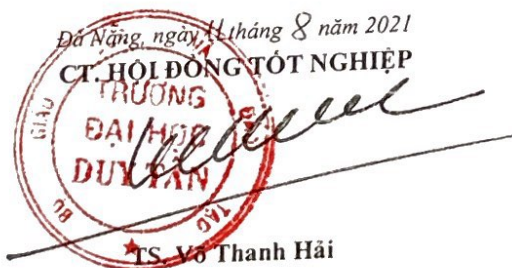 Đà Nẵng, ngày 11 tháng 8 năm 2021
CT. HỘI ĐỒNG TỐT NGHIỆP
BỘ GIÁO VÀ ĐÀO TẠO
TRƯỜNG
ĐẠI HỌC
DUY TÂN
TS. Võ Thanh Hải